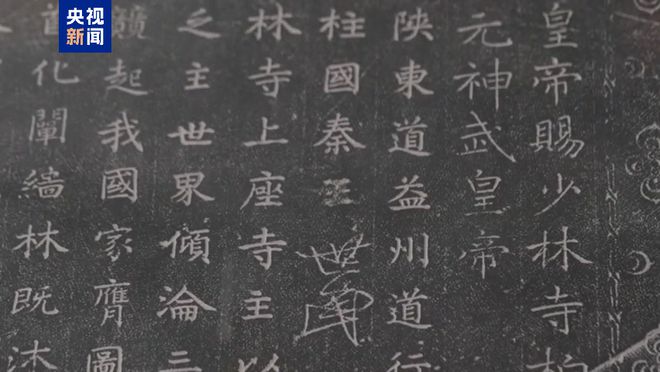 央视
新闻
皇帝賜少林寺柏
元神武皇帝
陝東道益州道行
柱國秦王世民
林寺上座寺主以
乏主世界傾淪三
競起我國家膺圖
首化闡緇林既沐